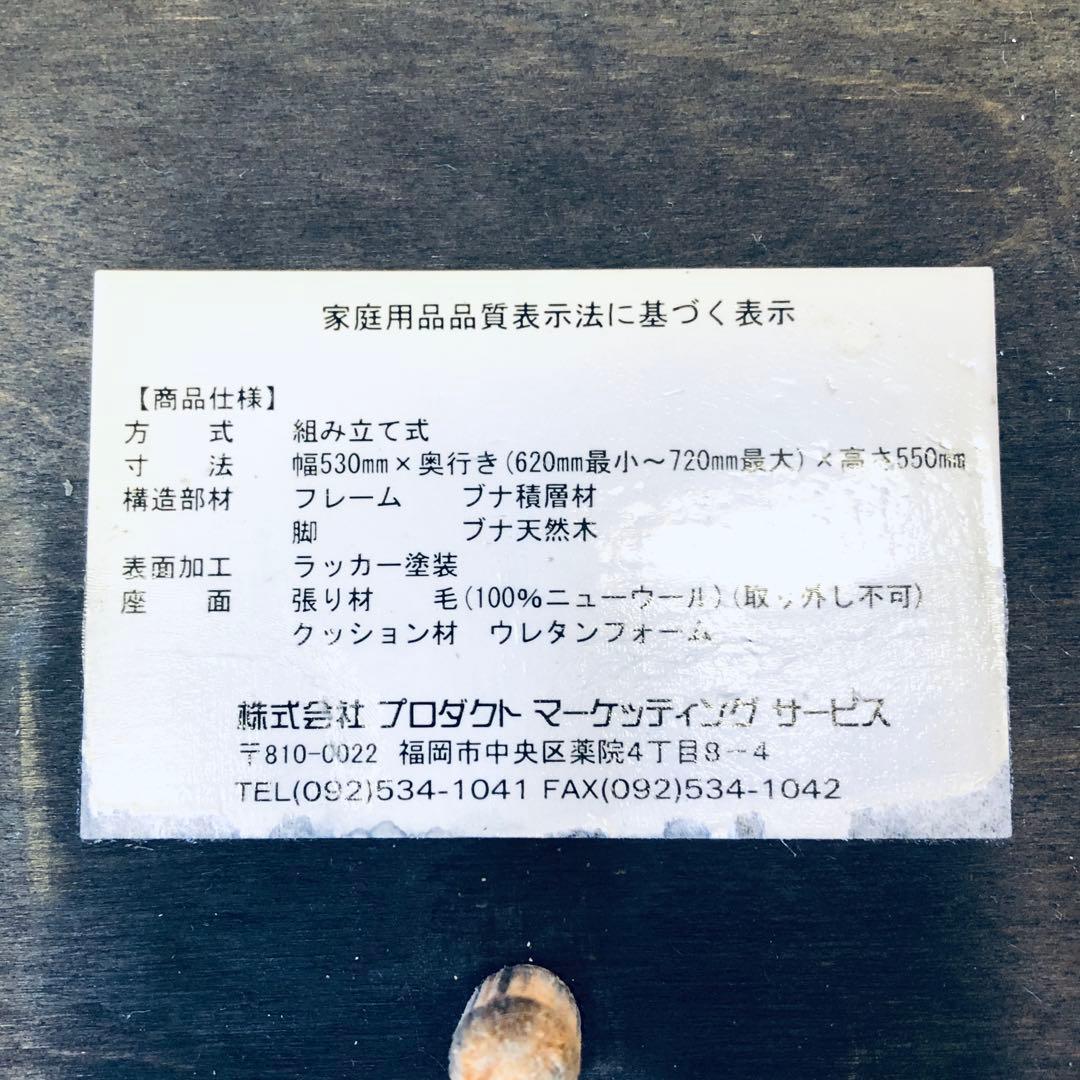 家庭用品品質表示法に基づく表示
【商品仕様】
方　　式　　組み立て式
寸　　法　　幅530mm×奥行き(620mm最小～720mm最大)×高さ550mm
構造部材　　フレーム　　ブナ積層材
脚　　ブナ天然木
表面加工　　ラッカー塗装
座　　面　　張り材　　毛(100%ニューウール)(取り外し不可)
クッション材　ウレタンフォーム
株式会社 プロダクト マーケッティング サービス
〒810-0022 福岡市中央区薬院4丁目8-4
TEL(092)534-1041 FAX(092)534-1042